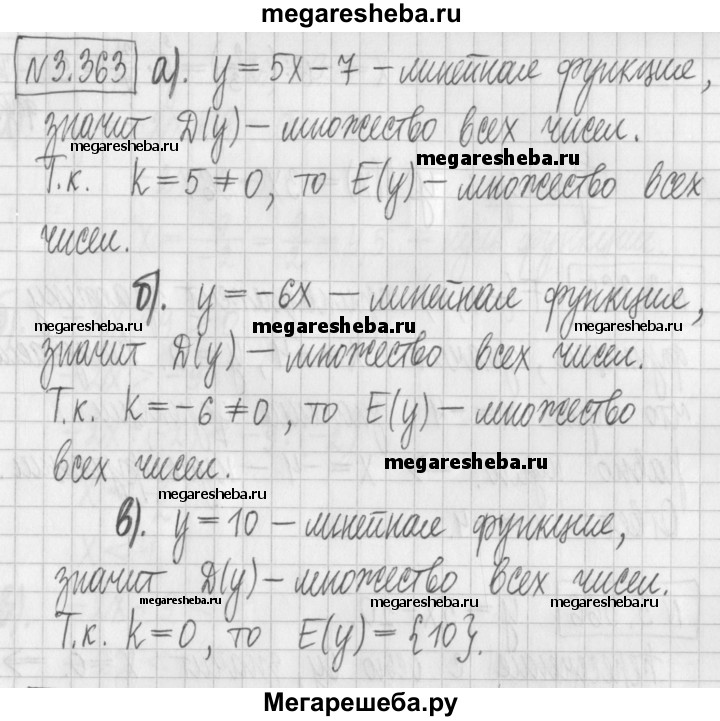 megaresheba.ru
№3.363 а). y = 5x - 7 - линейная функция,
значит D(y) - множество всех чисел.
megaresheba.ru
megaresheba.ru
Т.к. k = 5 ≠ 0, то E(y) - множество всех
чисел.
б). y = -6x - линейная функция,
megaresheba.ru
megaresheba.ru
megaresheba.ru
значит D(y) - множество всех чисел.
Т.к. k = -6 ≠ 0, то E(y) - множество
всех чисел.
megaresheba.ru
megaresheba.ru
в). y = 10 - линейная функция,
значит D(y) - множество всех чисел.
megaresheba.ru
megaresheba.ru
megaresheba.ru
Т.к. k = 0, то E(y) = {10}.
Мегарешеба.ру